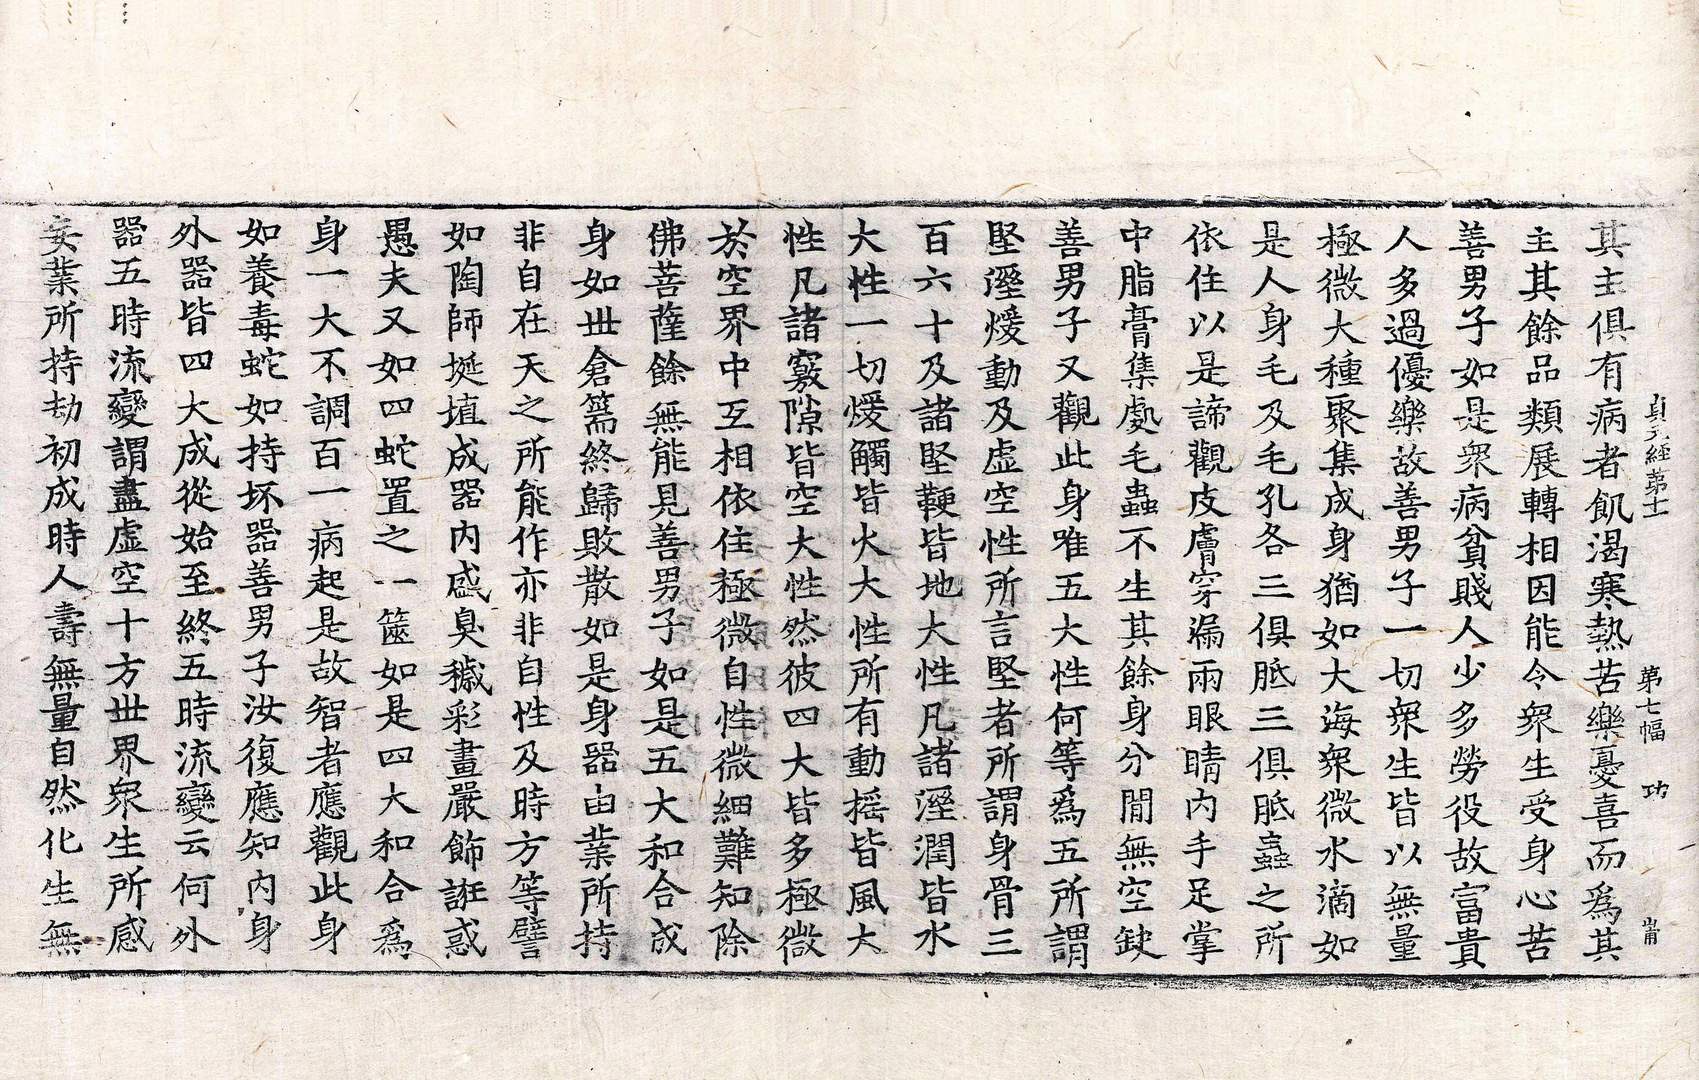 貞元經第十一 第七幅 功
其主俱有病者飢渴寒熱苦樂憂喜而爲其
主其餘品類展轉相因能令衆生受身心苦
善男子如是衆病貧賤人少多勞役故富貴
人多過優樂故善男子一切衆生皆以無量
極微大種聚集成身猶如大海衆微水滴如
是人身毛及毛孔各三俱胝三俱胝蟲之所
依住以是諦觀皮膚穿漏兩眼睛內手足掌
中脂膏集處毛蟲不生其餘身分閒無空缺
善男子又觀此身唯五大性何等爲五所謂
堅溼煖動及虛空性所言堅者所謂身骨三
百六十及諸堅鞕皆地大性凡諸溼潤皆水
大性一切煖觸皆火大性所有動搖皆風大
性凡諸竅隙皆空大性然彼四大皆多極微
於空界中互相依住極微自性微細難知除
佛菩薩餘無能見善男子如是五大和合成
身如世倉篅終歸敗散如是身器由業所持
非自在天之所能作亦非自性及時方等譬
如陶師埏埴成器內盛臭穢彩畫嚴飾誑惑
愚夫又如四蛇置之一篋如是四大和合爲
身一大不調百一病起是故智者應觀此身
如養毒蛇如持坏器善男子汝復應知內身
外器皆四大成從始至終五時流變云何外
器五時流變謂盡虛空十方世界衆生所感
妄業所持劫初成時人壽無量自然化生無